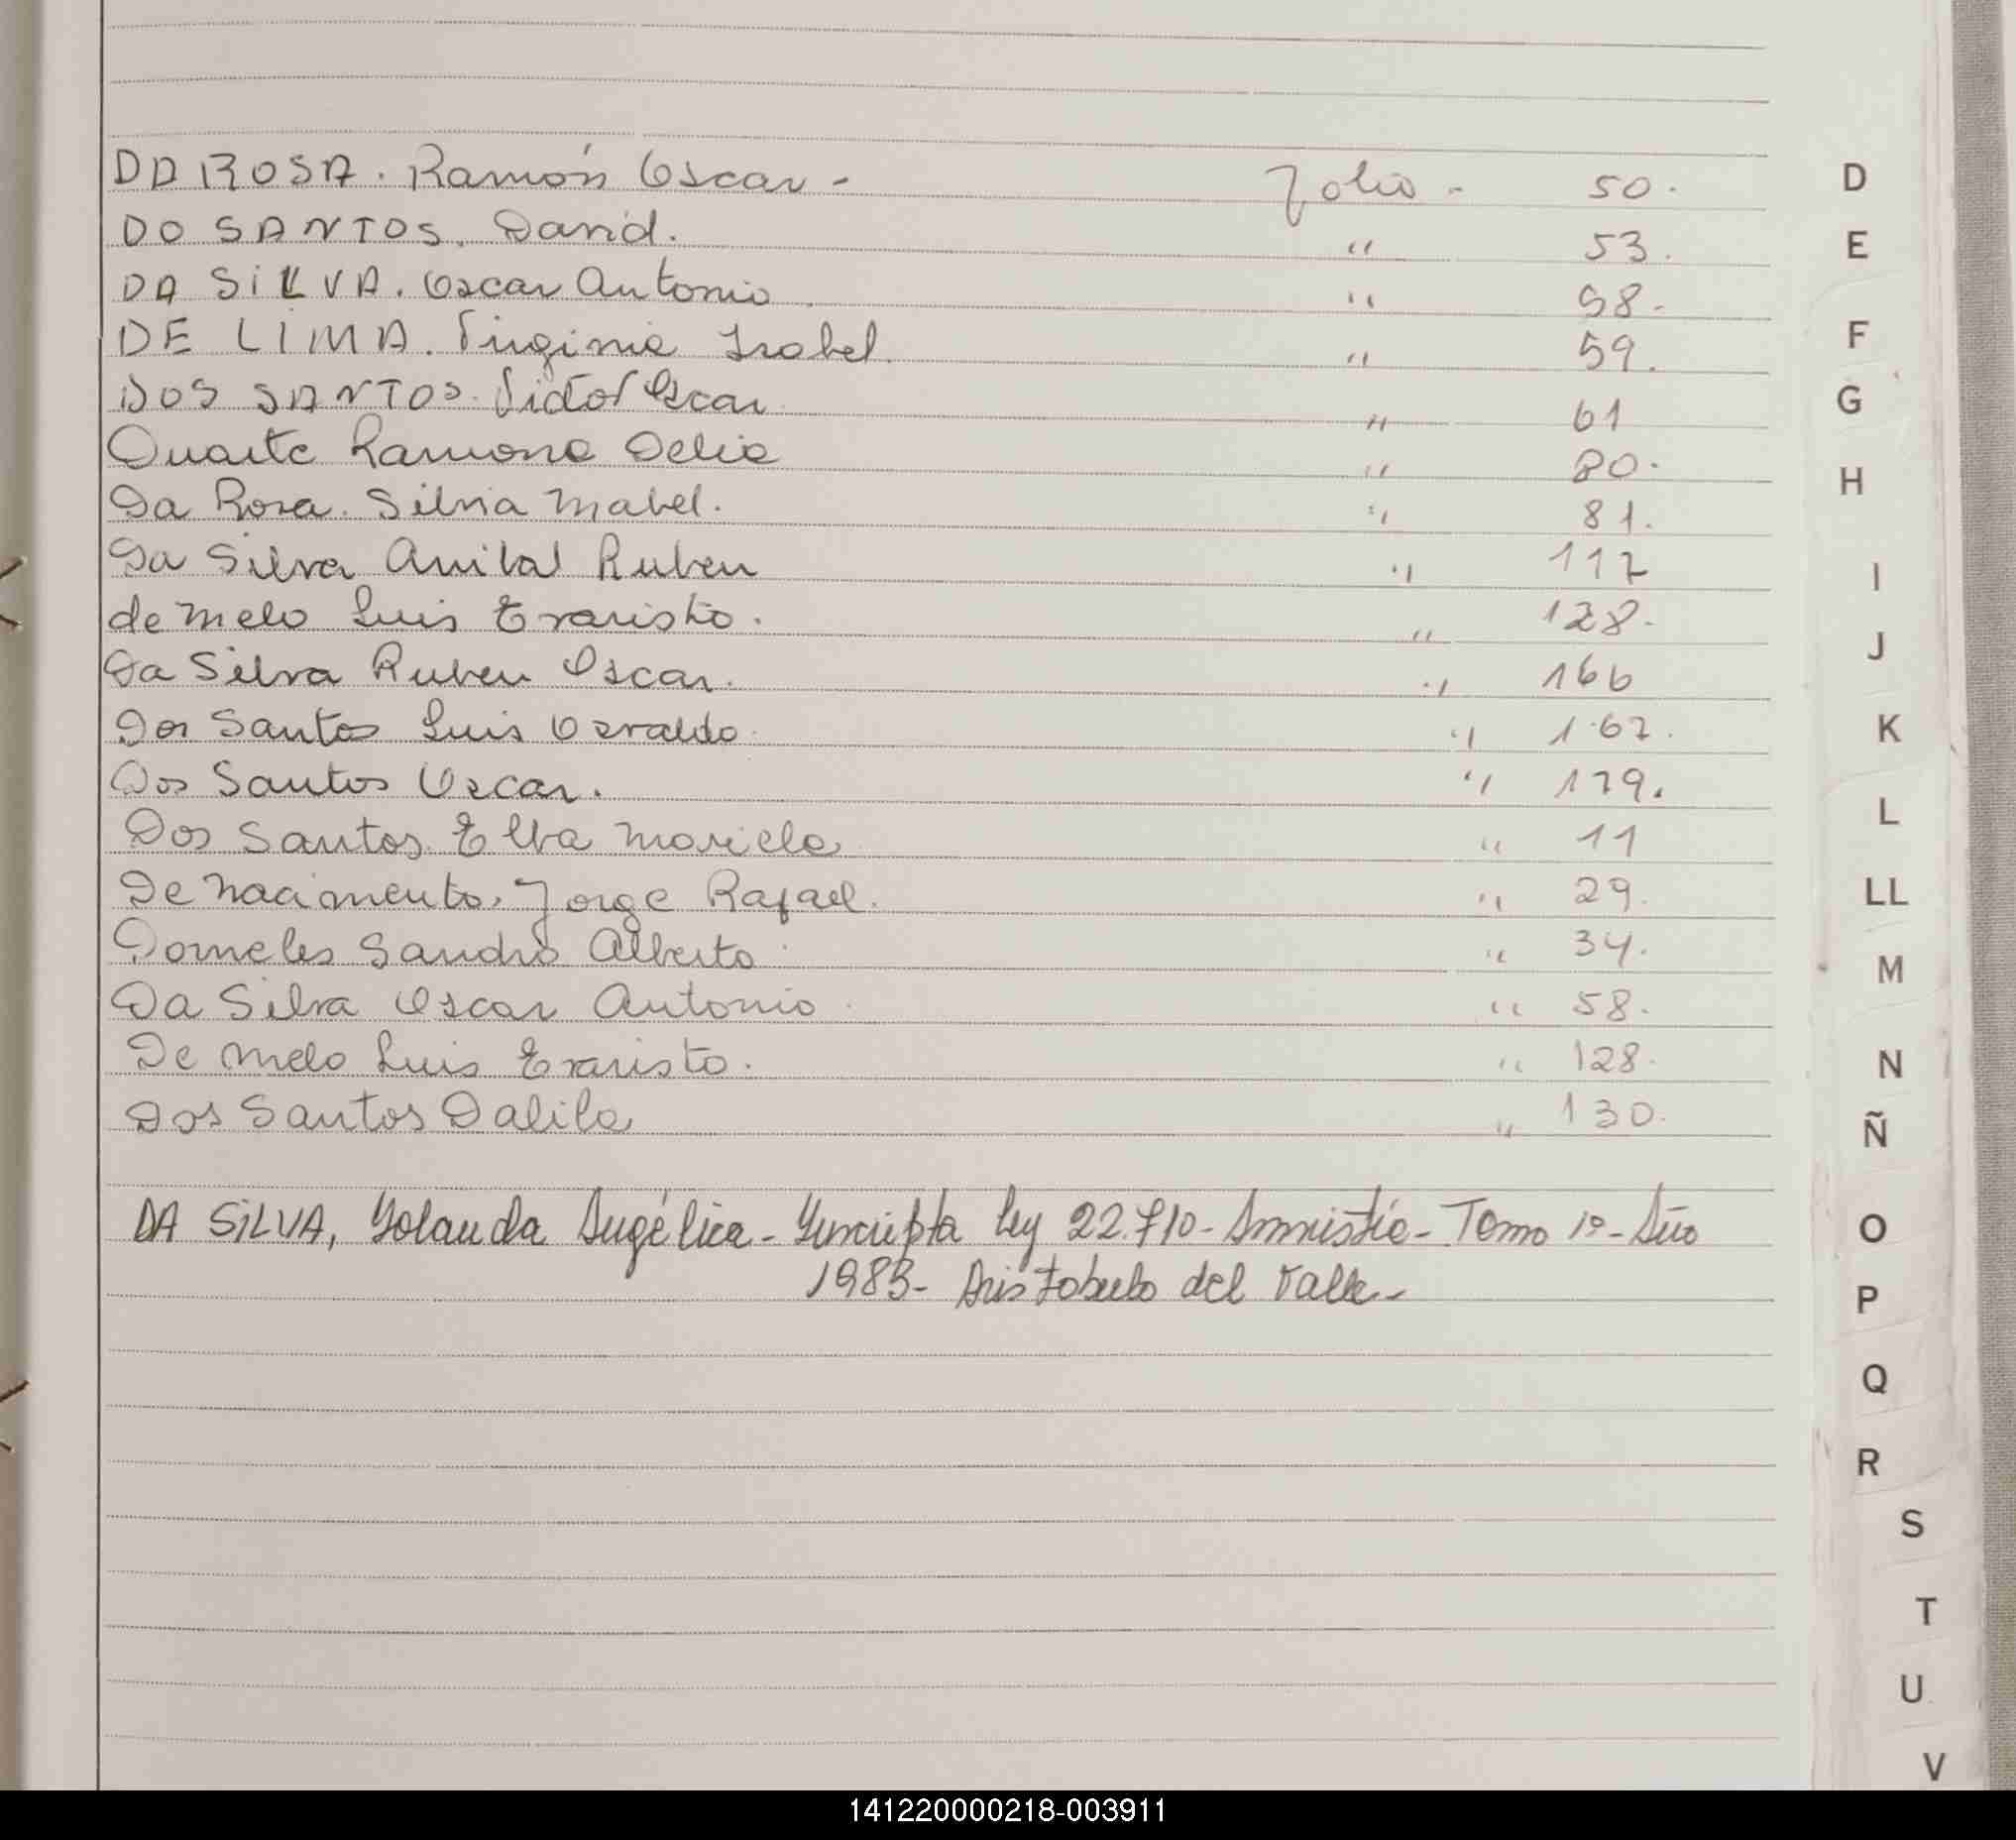 DA ROSA. Ramón Oscar - Folio - 50.
DO SANTOS. David. " 53.
DA SILVA. Oscar Antonio. " 58.
DE LIMA. Virginia Isabel. " 59.
DOS SANTOS. Victor Oscar. " 61
Duarte Ramona Delia " 80.
Da Rosa. Silvia Mabel. " 81.
Da Silva Anibal Ruben " 117
de Melo Luis Evaristo. " 128.
Da Silva Ruben Oscar. " 166
Dos Santos Luis Osvaldo. " 167.
Dos Santos Oscar. " 179.
Dos Santos Elba Mariela " 11
De Nacimento, Jorge Rafael. " 29.
Dorneles Sandro Alberto " 34.
Da Silva Oscar Antonio. " 58.
De Melo Luis Evaristo. " 128.
Dos Santos Dalila " 130.
DA SILVA, Yolanda Angélica - Inscripta ley 22.710 - Amnistía - Tomo 1º - Año
1983 - Aristobulo del Valle -
D
E
F
G
H
I
J
K
L
LL
M
N
Ñ
O
P
Q
R
S
T
U
V
141220000218-003911